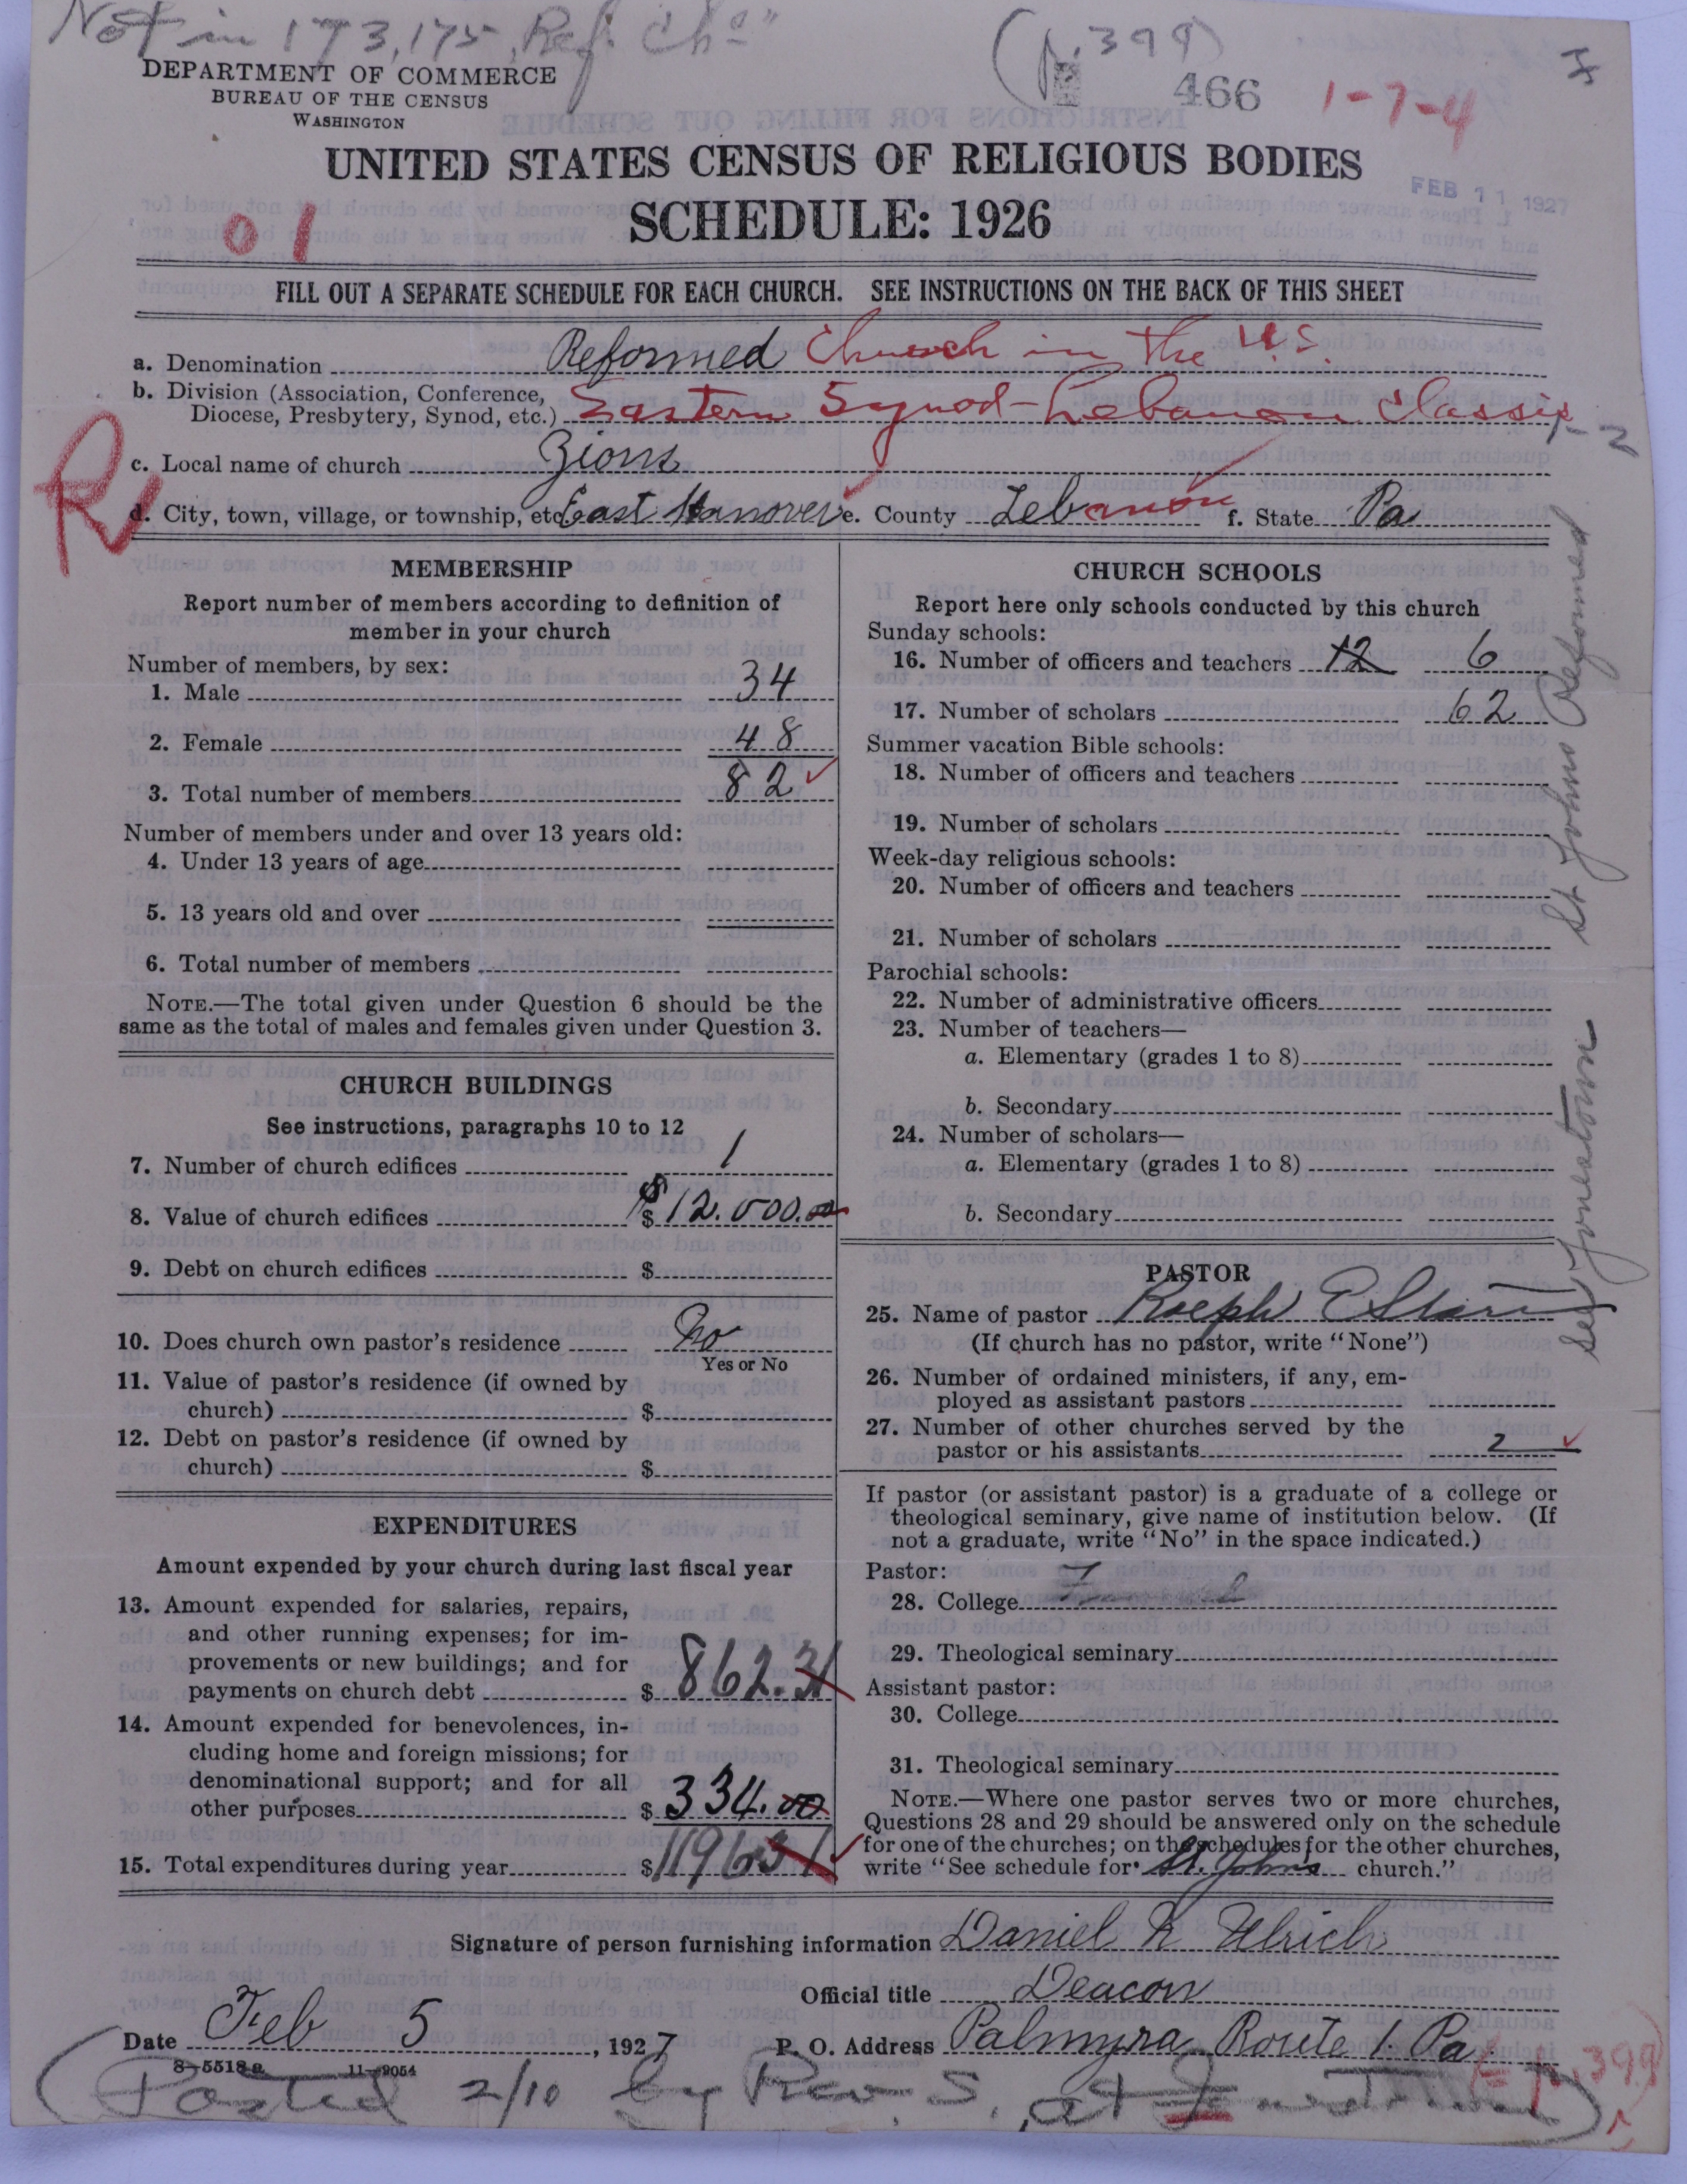 Not in 173,175, Ref. Ch
(p.399)
DEPARTMENT OF COMMERCE
BUREAU OF THE CENSUS
WASHINGTON
466
1-7-4
UNITED STATES CENSUS OF RELIGIOUS BODIES
FEB 11 1927
SCHEDULE: 1926
01
FILL OUT A SEPARATE SCHEDULE FOR EACH CHURCH. SEE INSTRUCTIONS ON THE BACK OF THIS SHEET
a. Denomination Reformed Church in the U.S.
b. Division (Association, Conference,
Diocese, Presbytery, Synod, etc.) Eastern Synod-Lebanon Classis
R
c. Local name of church Zions
d. City, town, village, or township, etc. East Hanover e. County Lebanon f. State Pa
MEMBERSHIP
Report number of members according to definition of
member in your church
Number of members, by sex:
1. Male 34
2. Female 48
3. Total number of members 82
Number of members under and over 13 years old:
4. Under 13 years of age
5. 13 years old and over
6. Total number of members
NOTE.—The total given under Question 6 should be the
same as the total of males and females given under Question 3.
CHURCH BUILDINGS
See instructions, paragraphs 10 to 12
7. Number of church edifices 1
8. Value of church edifices $ 12.000.00
9. Debt on church edifices $
10. Does church own pastor's residence No
Yes or No
11. Value of pastor's residence (if owned by
church) $
12. Debt on pastor's residence (if owned by
church) $
EXPENDITURES
Amount expended by your church during last fiscal year
13. Amount expended for salaries, repairs,
and other running expenses; for im-
provements or new buildings; and for
payments on church debt $ 862.31
14. Amount expended for benevolences, in-
cluding home and foreign missions; for
denominational support; and for all
other purposes $ 334.00
15. Total expenditures during year $ 1196 31
CHURCH SCHOOLS
Report here only schools conducted by this church
Sunday schools:
16. Number of officers and teachers 12 6
17. Number of scholars 62
Summer vacation Bible schools:
18. Number of officers and teachers
19. Number of scholars
Week-day religious schools:
20. Number of officers and teachers
21. Number of scholars
Parochial schools:
22. Number of administrative officers
23. Number of teachers—
a. Elementary (grades 1 to 8)
b. Secondary
24. Number of scholars—
a. Elementary (grades 1 to 8)
b. Secondary
PASTOR
25. Name of pastor Ralph E Starr
(If church has no pastor, write "None")
26. Number of ordained ministers, if any, em-
ployed as assistant pastors
27. Number of other churches served by the
pastor or his assistants 2
If pastor (or assistant pastor) is a graduate of a college or
theological seminary, give name of institution below. (If
not a graduate, write "No" in the space indicated.)
Pastor:
28. College
29. Theological seminary
Assistant pastor:
30. College
31. Theological seminary
NOTE.—Where one pastor serves two or more churches,
Questions 28 and 29 should be answered only on the schedule
for one of the churches; on the schedules for the other churches,
write "See schedule for St. Johns church."
See Jonestown St Johns Reformed
Signature of person furnishing information Daniel K Ulrich
Official title Deacon
Date Feb 5, 1927
P. O. Address Palmyra Route 1. Pa
8—5518a 11—9054
(Posted 2/10 by Rev. S. at
p.399)